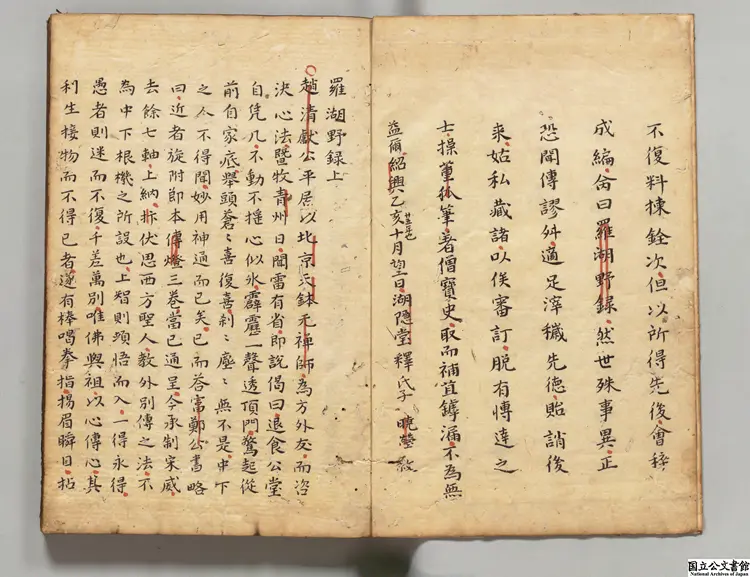 不復料揀銓次但以所得先後會稡
成編命曰羅湖野錄然世殊事異正
恐聞傳謬舛適足滓穢先德貽誚後
來姑私藏諸以俟審訂脫有博達之
士操董狐筆著僧寶史取而補苴罅漏不為無
益爾紹興乙亥十月望日湖隱堂釋氏子曉瑩敘
廿五年也
羅湖野錄上
趙清獻公平居以北京天鉢元禪師為方外友而咨
決心法暨牧青州日聞雷有省即說偈曰退食公堂
自凭几不動不搖心似水霹靂一聲透頂門驚起從
前自家底舉頭蒼蒼喜復喜刹刹塵塵無不是中下
之人不得聞妙用神通而已矣已而答富鄭公書略
曰近者旋附節本傳燈三卷當已通呈今承制宋威
去餘七軸上納抃伏思西方聖人教外別傳之法不
為中下根機之所設也上智則頓悟而入一得永得
愚者則迷而不復千差萬別唯佛與祖以心傳心其
利生接物而不得已者遂有棒喝拳指揚眉瞬目拈
国立公文書館
National Archives of Japan